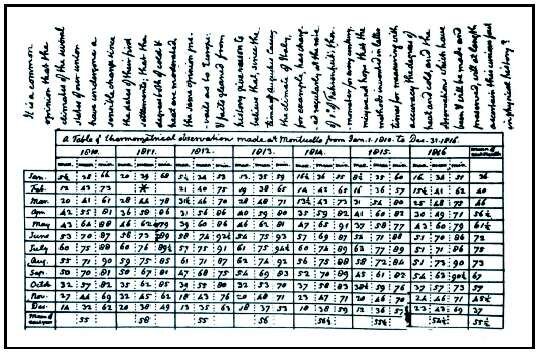 It is a common
opinion that the
climates of the several
states of our union
have undergone a
sensible change since
the dates of their first
settlements; that the
degrees both of cold &
heat are moderated.
the same opinion pre-
vails as to Europe:
& facts gleaned from
history give reason to
believe that, since the
time of Augustus Caesar,
the climate of Italy,
for example, has chang-
ed regularly at the rate
of 1° of Fahrenheit's ther-
mometer for every century.
may we not hope that the
methods invented in latter
times for measuring with
accuracy the degrees of
heat and cold, and the
observations which have
been & will be made and
preserved, will at length
ascertain this curious fact
in physical history?
a Table of thermometrical observations made at Monticello from Jan. 1. 1810. to Dec. 31. 1816.
1810. 1811. 1812. 1813. 1814. 1815. 1816
max. mean min. max. mean min. max. mean min. max. mean min. max. mean min. max. mean min. max. mean min. mean of each month
Jan. 38 66 20 39 68 34 53 13 35 59 16½ 36 55 8½ 35 60 16 34 51 36
Feb. 12 43 73 * 21 40 75 19 38 65 14 42 65 16 36 57 15½ 41 62 40
Mar. 20 41 61 28 44 78 31½ 46 70 28 48 71 13½ 43 73 31 54 80 25 48 75 46
Apr. 42 55 81 36 58 86 31 56 86 40 59 80 35 59 82 41 60 82 30 49 71 56½
May 43 64 88 46 62 39 60 86 46 62 81 47 65 91 37 58 77 43 60 79 61½
June 53 70 87 58 73 89 58 74 92½ 54 75 93 57 69 87 54 71 88 51 70 86 72
July 60 75 88 60 76 89½ 57 75 91 61 75 94½ 60 74 89 63 77 89 51 71 86 75
Aug. 55 71 90 59 75 85 61 71 87 62 74 92 56 75 88 58 72 84 51 73 90 73
Sep. 50 70 81 50 67 81 47 68 75 54 69 83 52 70 89 45 61 82 54 63 90½ 67
Octob. 32 57 82 35 62 85 39 55 80 32 53 70 37 58 83 38½ 59 76 37 57 73 57
Nov. 27 44 69 32 45 62 18 43 76 20 48 71 23 47 71 20 46 70 24 46 71 45½
Dec. 14 32 62 20 38 49 13 35 63 18 37 53 18 38 59 12 36 57 23 43 69 37
mean of each year 55 58 55 56 56½ 55½ 54½ 55½